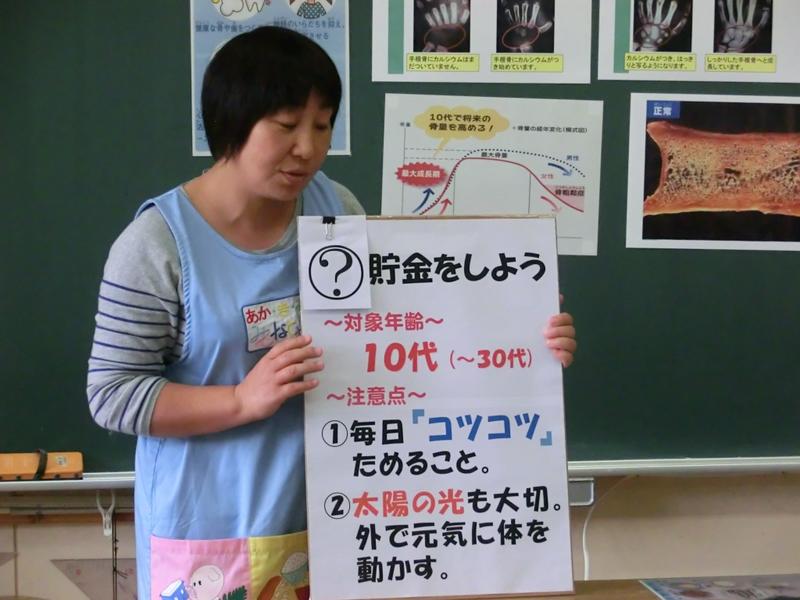 健康な骨や歯をつく
手根骨にカルシウムはま
だついていません。
手根骨にカルシウムがつ
き始めています。
カルシウムがつき、はっき
りと写るようになります。
しっかりした手根骨へと成
長しています。
10代で将来の
骨量を高める!
骨量の経年変化(模式図)
骨量
最大骨量
男性
女性
最大成長期
骨粗鬆症
正常
?
貯金をしよう
〜対象年齢〜
10代(〜30代)
〜注意点〜
①毎日『コツコツ』
ためること。
②太陽の光も大切。
外で元気に体を
動かす。
あか・き